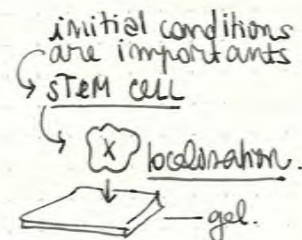 initial conditions
are importants
STEM CELL
X localisation.
gel.